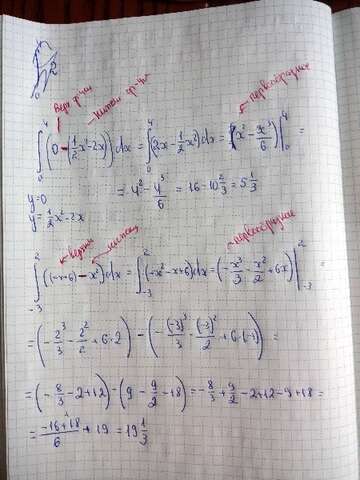 2
0
верх ф-ция нижняя ф-ция первообразные
∫₀⁴ (0 - (1/2 x² - 2x)) dx = ∫₀⁴ (2x - 1/2 x²) dx = (x² - x³/6) |₀⁴ =
= 4² - 4³/6 = 16 - 10 2/3 = 5 1/3
y = 0
y = 1/2 x² - 2x
первообразные
∫₋₃² ((-x+6) - x²) dx = ∫₋₃² (-x² - x + 6) dx = (-x³/3 - x²/2 + 6x) |₋₃² =
= (-2³/3 - 2²/2 + 6·2) - (-(-3)³/3 - (-3)²/2 + 6·(-3)) =
= (-8/3 - 2 + 12) - (9 - 9/2 - 18) = -8/3 + 9/2 - 2 + 12 - 9 + 18 =
= (-16+18)/6 + 19 = 19 1/3